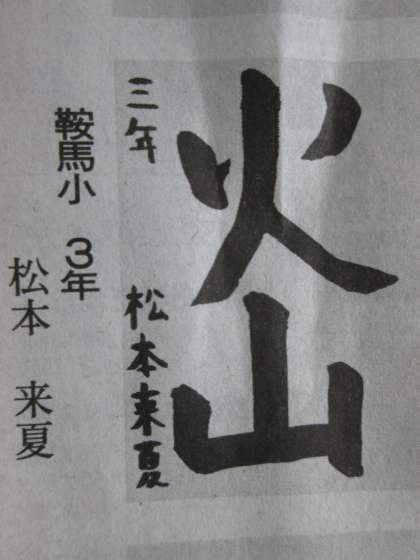 火山
三年 松本来夏
鞍馬小 3年
松本 来夏